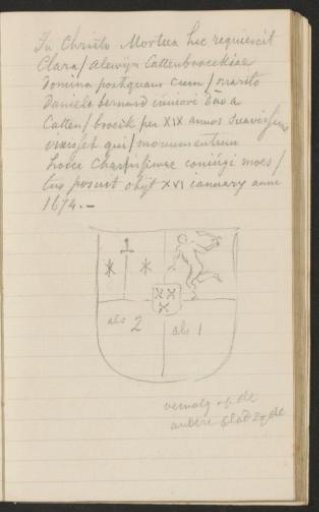 In Christo Mortua hic requiescit
Clara/ Alewijn Cattenbroeckiae
Domina postquam cum/ marito
Daniele bernard iuniore Dño a
Catten/broeck per XIX annos suavissime
vixisset qui/ monumentum
hocce Charissimae coniúgi moes/
tus posuit obyt XVI january anno
1674.-
als 2
als 1
vervolg op de
andere blad zijde